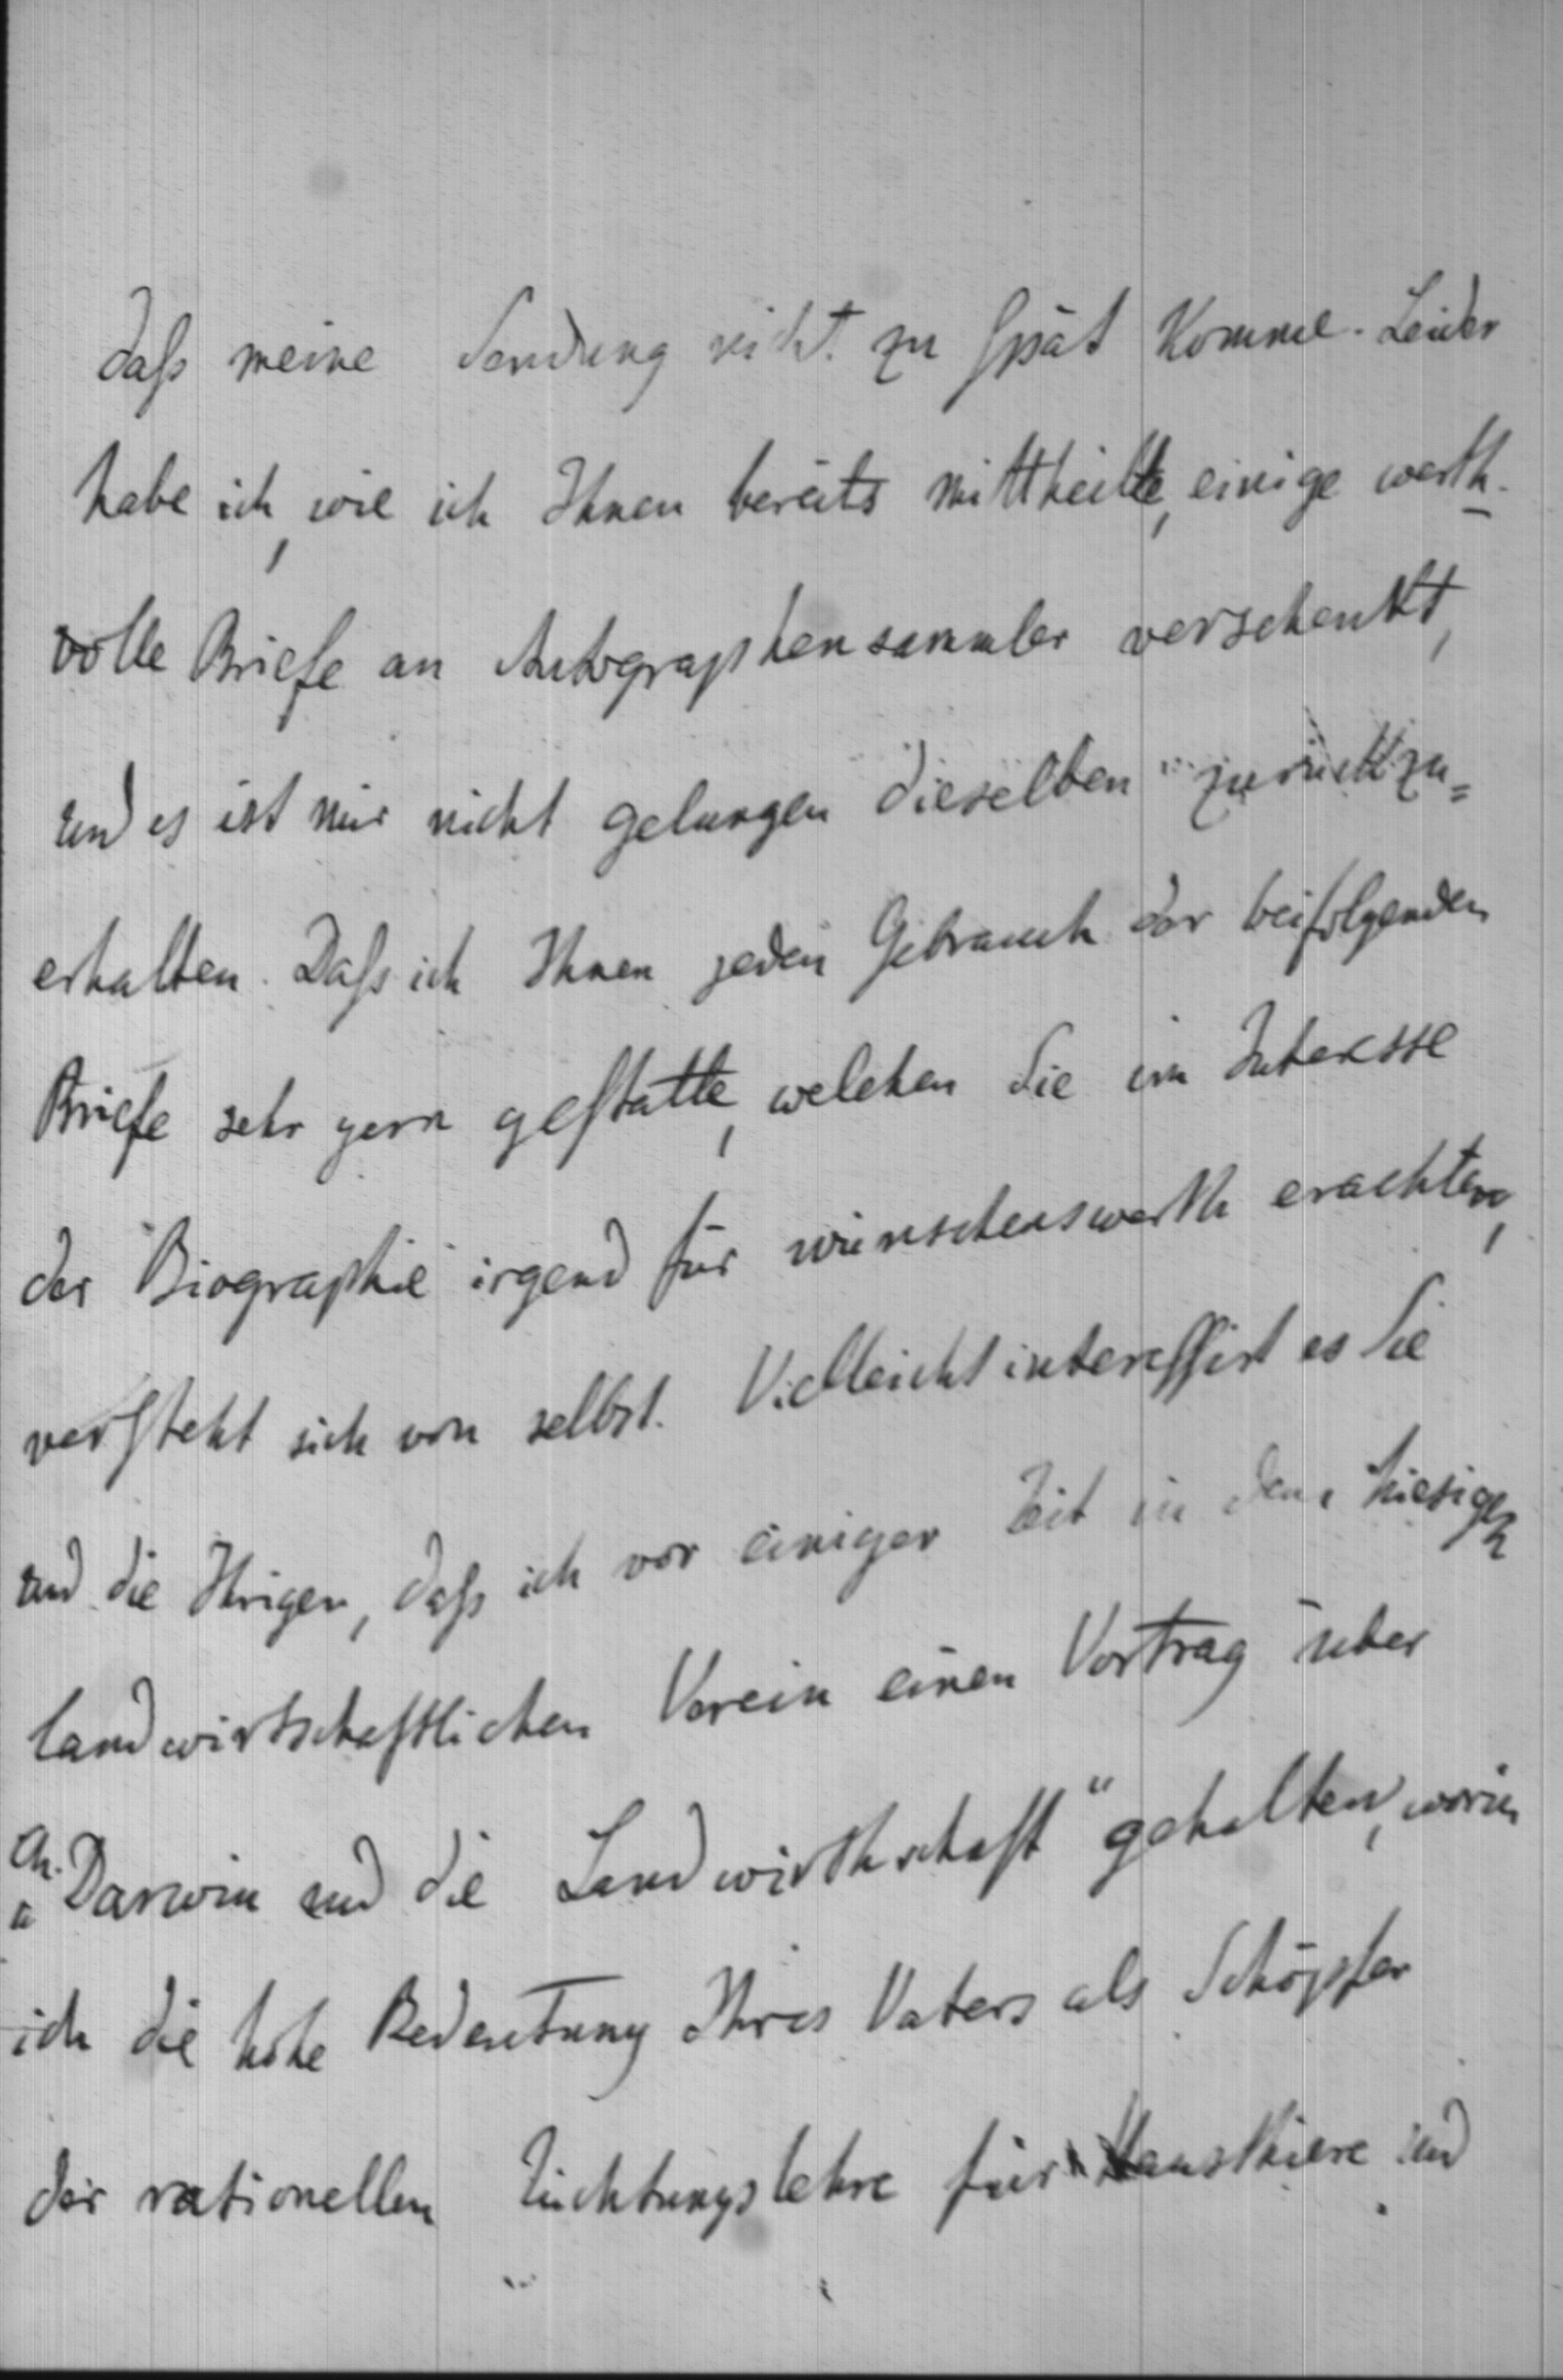 daſs meine Sendung nicht zu ſpät komme. Leider
habe ich, wie ich Ihnen bereits mittheilte, einige werth-
volle Briefe an Autographensammler verschenkt,
und es ist mir nicht gelungen dieselben zurückzu=
erhalten. Daſs ich Ihnen jeden Gebrauch der beifolgenden
Briefe sehr gern geſtatte, welchen Sie im Interesse
der Biographie irgend für wünschenswerth erachten,
verſteht sich von selbst. Vielleicht intereſſirt es Sie
und die Ihrigen, daſs ich vor einiger Zeit in dem hiesigen
landwirtschaftlichen Verein einen Vortrag über
„Ch. Darwin und die Landwirthschaft“ gehalten, worin
ich die hohe Bedeutung Ihres Vaters als Schöpfer
der rationellen Züchtungslehre für Hausthiere und